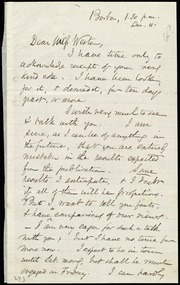 Boston, 1.50 p.m.
Dec. 11.
Dear Miss Weston,
I have time only to
acknowledge receipt of your very
kind note. I have been looking
for it, or desired it, for ten days
past, or more.
I wish very much to see
& talk with you. I am
sure, as I can be of anything in
the future, that you are entirely
mistaken in the results expected
from the publication. Some
results I anticipate, & I doubt
if all of them will be propitious.
But I want to tell you facts,
& have comparison of our views.
I am very eager for such a talk
with you; but I have no time for
more now. I expect to be in town
until 6 1/2 P.M., but shall be much
engaged in Friday I am hardly